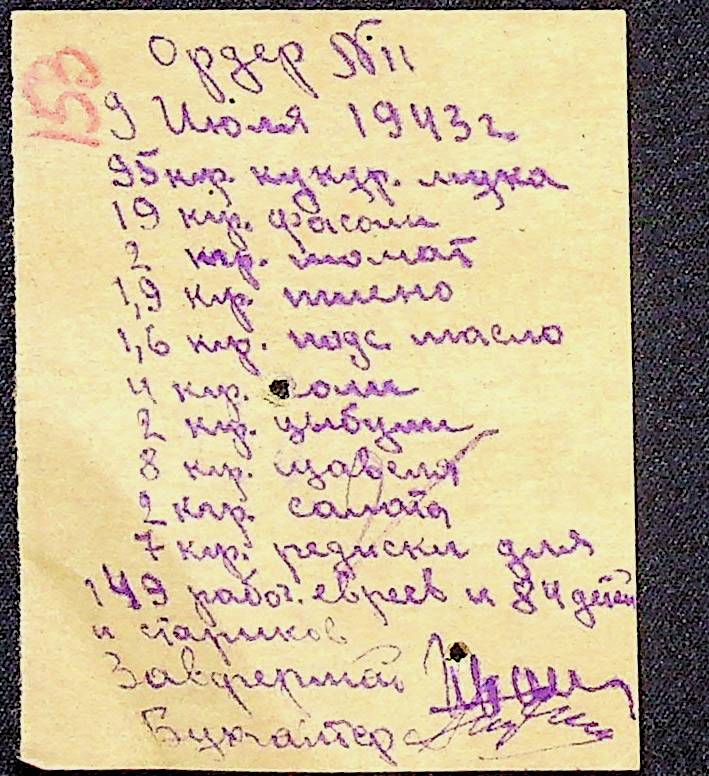 153
Ордер № 11
9 Июля 1943 г
95 кгр. кукур. мука
19 кгр. фасоли
2 кгр. томат
1,9 кгр. пшено
1,6 кгр. подс. масло
4 кгр. соли
2 кгр. цибули
8 кгр. щавеля
2 кгр. салата
7 кгр. редиски для
149 рабоч. евреев и 84 детей
и стариков
Завфермой
Бухгалтер